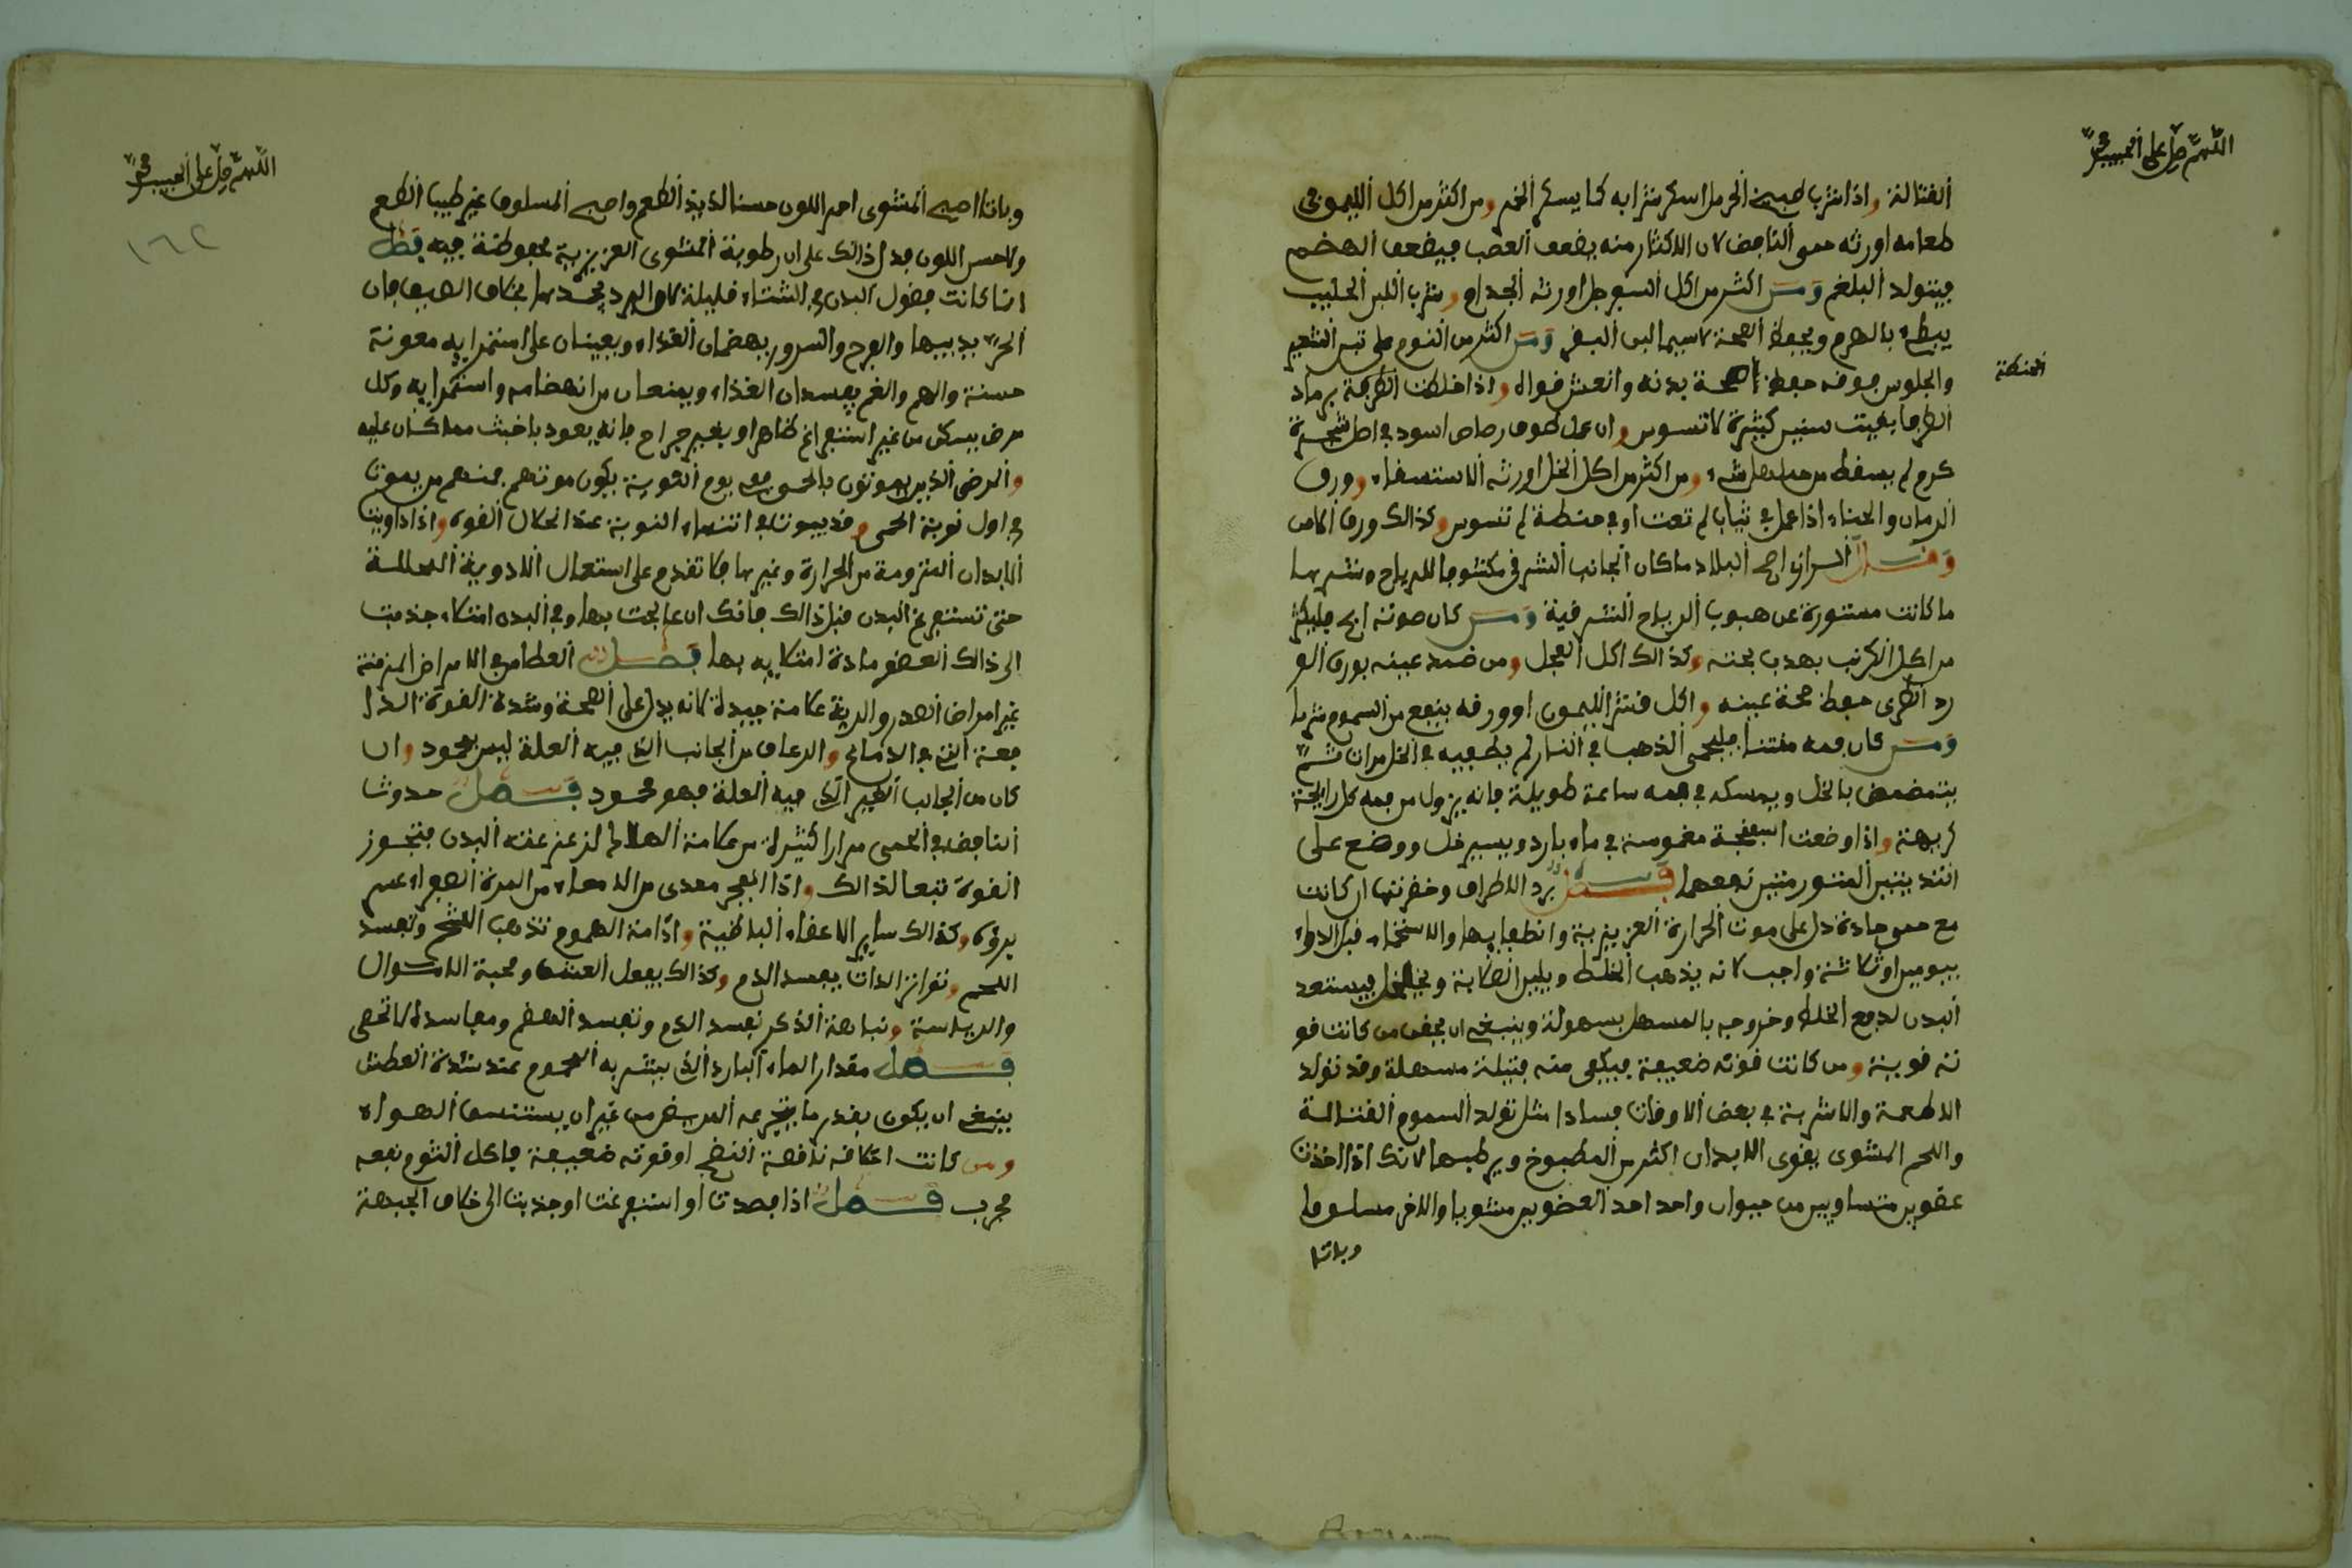 اللهم صل على الحبيب محمد
القتالة واذا شرب طبيخ الحرمل اسكر شرابه كما يسكر الخمر ومن اكثر من اكل الليمون في
طعامه اورثه حمى النافض لان الاكثار منه يضعف العصب فيضعف الهضم
فيتولد البلغم ومن اكثر من اكل السفرجل اورثه الجذام وشرب اللبن الحليب
يبطء بالهرم ويحفظ الصحة لاسيما لبن البقر ومن اكثر من النوم على تبن الشعير
والجلوس فوقه حفظ صحة بدنه وانعش قواه واذا خلطت برماد
الحنطة
الطرفا بقيت سنين كثيرة لا تسوس وان عمل طوق رصاص اسود في اصل شجرة
كرم لم يسقط من حملها شيء ومن اكثر من اكل الخل اورثه الاستسقاء وورق
الرمان والحناء اذا عمل في ثياب لم تعث او في حنطة لم تسوس وكذالك ورق الآس
وقال الرازي اصح البلاد ما كان الجانب الشرفي مكشوفا للرياح وشرها
ما كانت مستورة عن هبوب الرياح الشرقية ومن كان صوته ابح فليكثر
من اكل الكرنب يهدب بحته وكذالك اكل الفجل ومن ضمد عينه بورق الو
رد الطرى حفظ صحة عينه واكل قشر الليمون او ورقه ينفع من السموم شربا
ومن كان فمه منتنا فليحمى الذهب في النار ثم يطفيه في الخل مرات ثم
يتمضمض بالخل ويمسكه في فمه ساعة طويلة فانه يزول من فمه كل رايحة
كريهة واذا وضعت اسفنجة مغموسة في ماء بارد ويسير خل ووضع على
الثديين المتورمتين نفعهما فصل برد الاطراف وخضرتها ان كانت
مع حمى حادة دل على موت الحرارة الغريزية وانطفايها والاستحمام قبل الدواء
بيومين او ثلاثة واجب لانه يذهب الخلط ويلين الصلابة فيستعد
البدن لدفع الخلط وخروجه بالمسهل بسهولة وينبغي ان يحقن من كانت قو
ته قوية ومن كانت قوته ضعيفة فيكفى منه فتيلة مسهلة وقد تولد
الاطعمة والاشربة في بعض الاوقات فسادا مثل تولد السموم القتالة
واللحم المشوى يقوى الابدان اكثر من المطبوخ ويرطبها لانك اذا اخذت
عضوين متساويين من حيوان واحد احد العضوين مشويا والاخر مسلوقا
وباتا
اللهم صل على الحبيب محمد
١٦٢
وباتا اصبح المشوى احمر اللون حسنا لذيذ الطعم واصبح المسلوق غير طيب الطعم
ولا حسن اللون فدل ذالك على ان رطوبة المشوى الغريزية محفوظة فيه فصل
انما كانت فضول البدن في الشتاء قليلة لان البرد يجمدها بخلاف الصيف فان
الحر يذيبها والفرح والسرور يهضمان الغذاء ويعينان على استمرايه معونة
حسنة والهم والغم يفسدان الغذاء ويمنعان من انهضامه واستمرايه وكل
مرض يسكن من غير استفراغ ظاهر او بغير خراج فانه يعود باخبث مما كان عليه
والمرضى الذين يموتون بالحمى يوم النوبة يكون موتهم فمنهم من يموت
في اول نوبة الحمى وقد يموت في انتهاء النوبة عند انحلال القوة واذا داويت
الابدان المتورمة من الحرارة وغيرها فلا تقدم على استعمال الادوية المحللة
حتى تستفرغ البدن قبل ذالك فانك ان عالجت بها وفي البدن امتلاء جذبت
الى ذالك العضو مادة امتلايه بها فصل العطاس في الامراض المزمنة
غير امراض الصدر والرية علامة جيدة لانه يدل على الصحة وشدة القوة الدا
فعة التي في الدماغ والرعاف من الجانب الذي فيه العلة ليس بمحمود وان
كان من الجانب الغير الذي فيه العلة فهو محمود فصل حدوث
النافض في الحمى مرارا كثيرة من علامة الهلاك لانه يزعزع البدن فتخور
القوة تبعا لذالك واذا انفجر معدى من الامعاء من المرة الصفراء عسر
بروه وكذالك ساير الاعضاء الباطنية وادامة الهموم تذهب الشحم وتفسد
اللحم وتواتر اللذات يفسد الدم وكذالك يفعل العشق ومحبة الاموال
والرياسة ونباهة الذكر تفسد الدم وتفسد الهضم ومفاسده لا تحصى
فصل مقدار الماء البارد الذي يشربه المحموم عند شدة العطش
ينبغي ان يكون بقدر ما يتجرعه المريض من غير ان يستنشق الهواء
ومن كانت اخلاطه ناقصة النضج او قوته ضعيفة فاكل الثوم نفعه
مجرب فصل اذا فصدت او استفرغت او جذبت الى خلاف الجبهة